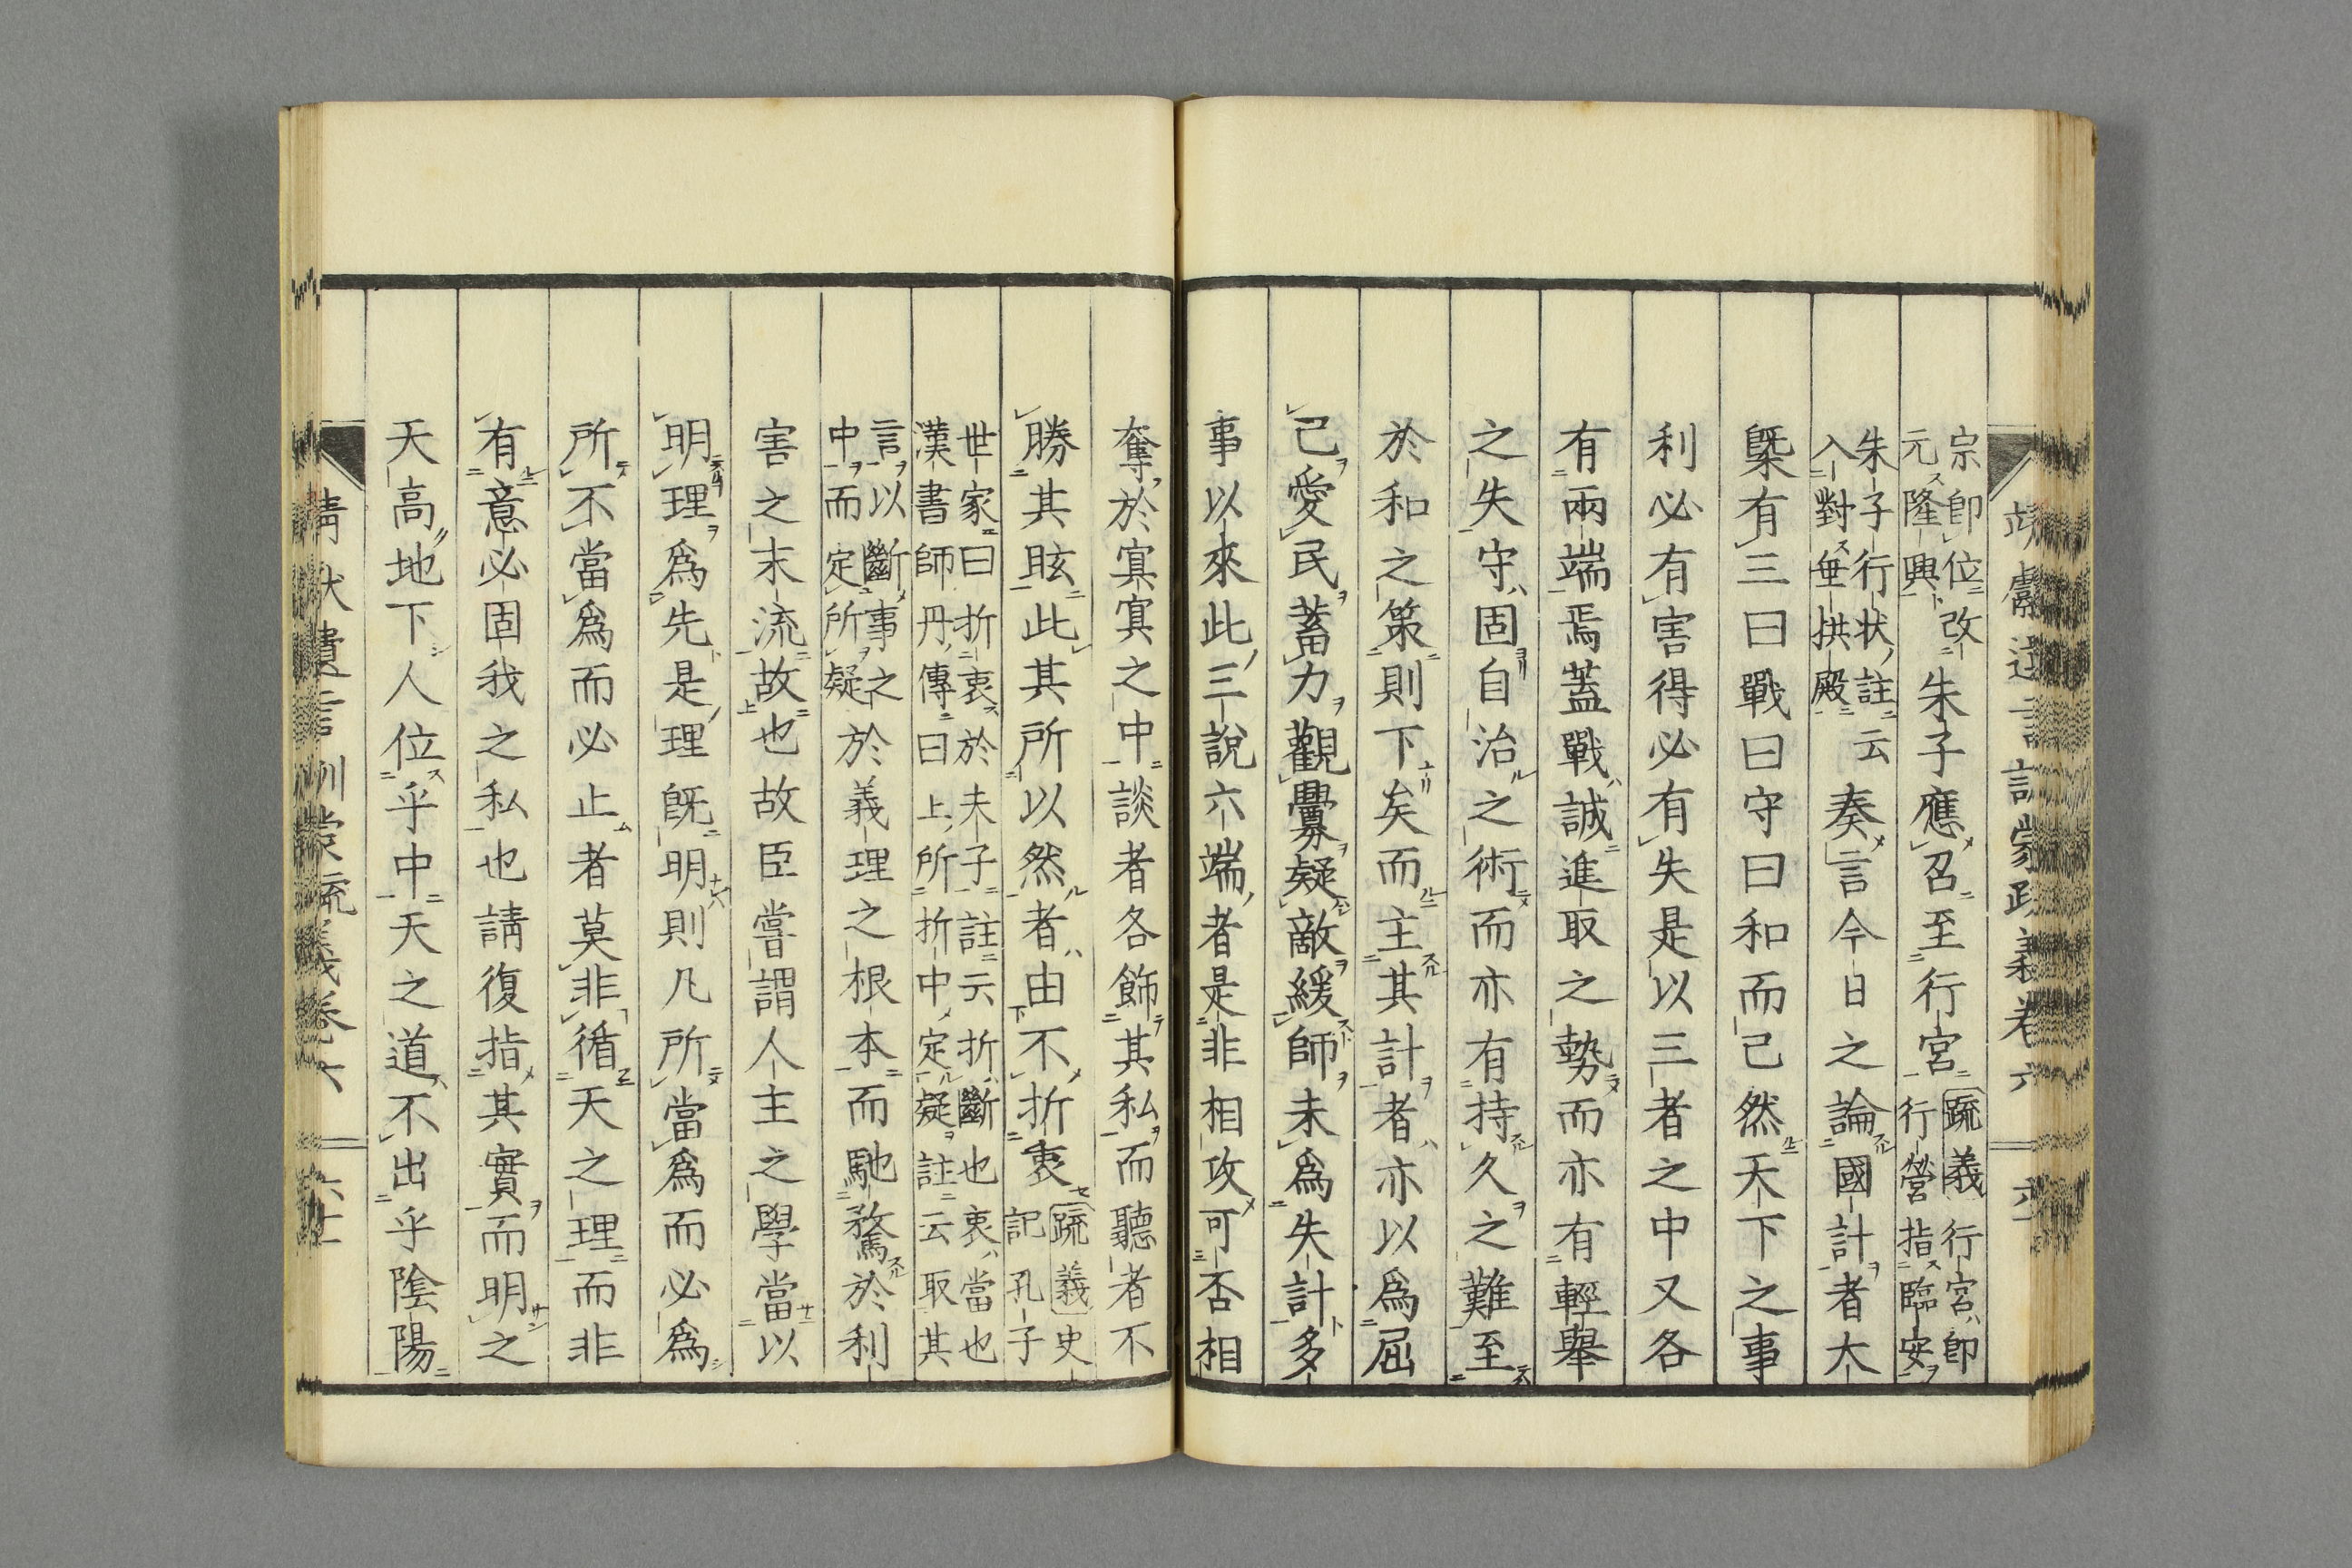 靖獻遺言訓蒙疏義卷六
宗即位改
元隆興
朱子應召至行宮
疏義行宮即
行營指臨安
朱子行状註云
入對垂拱殿
奏言今日之論國計者大
槩有三曰戰曰守曰和而已然天下之事
利必有害得必有失是以三者之中又各
有兩端焉蓋戰誠進取之勢而亦有輕舉
之失守固自治之術而亦有持久之難至
於和之策則下矣而主其計者亦以爲屈
己愛民蓄力觀釁疑敵緩師未爲失計多
事以來此三說六端者是非相攻可否相
奪於冥冥之中談者各飾其私而聽者不
勝其眩此其所以然者由不折衷
疏義史
記孔子
世家曰折衷於夫子註云折斷也衷當也
漢書師丹傳曰上所折中定疑註云取其
言以斷事之
中而定所疑
於義理之根本而馳騖於利
害之末流故也故臣嘗謂人主之學當以
明理爲先是理既明則凡所當爲而必爲
所不當爲而必止者莫非循天之理而非
有意必固我之私也請復指其實而明之
天高地下人位乎中天之道不出乎陰陽
靖獻遺言訓蒙疏義卷六